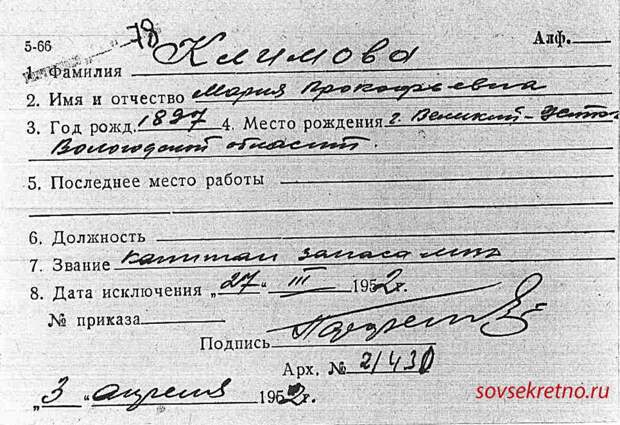 78
5-66
Алф.
1. Фамилия Климова
2. Имя и отчество Мария Прокофьевна
3. Год рожд. 1897 4. Место рождения г. Великий-Устюг
Вологодской области.
5. Последнее место работы
6. Должность
7. Звание капитан запаса
8. Дата исключения „27“ III 1952г.
№ приказа
Подпись
Арх. № 21430
„3“ апреля 1952г.
sovsekretno.ru